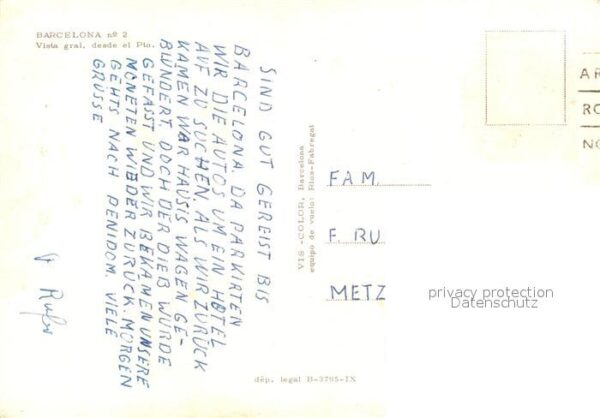 BARCELONA nº 2
Vista gral. desde el Pto.
SIND GUT GEREIST BIS
BARCELONA DA PARKIRTEN
WIR DIE AUTOS UM EIN HOTEL
AUF ZU SUCHEN. ALS WIR ZURÜCK
KAMEN WAR HAUSIS WAGEN GE-
BLÜNDERT. DOCH DER DIEB WURDE
GEFASST UND WIR BEKAMEN UNSERE
MONETEN WIEDER ZURÜCK. MORGEN
GEHTS NACH BENIDOM. VIELE
GRÜSSE
VIS-COLOR, Barcelona
equipo de vuelo: Rius-Fabregat
FAM.
F. RU
METZ
privacy protection
Datenschutz
dép. legal B-3795-IX
AR
RO
NO